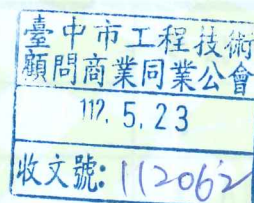 臺中市工程技術
顧問商業同業公會
112. 5. 23
收文號: 112062